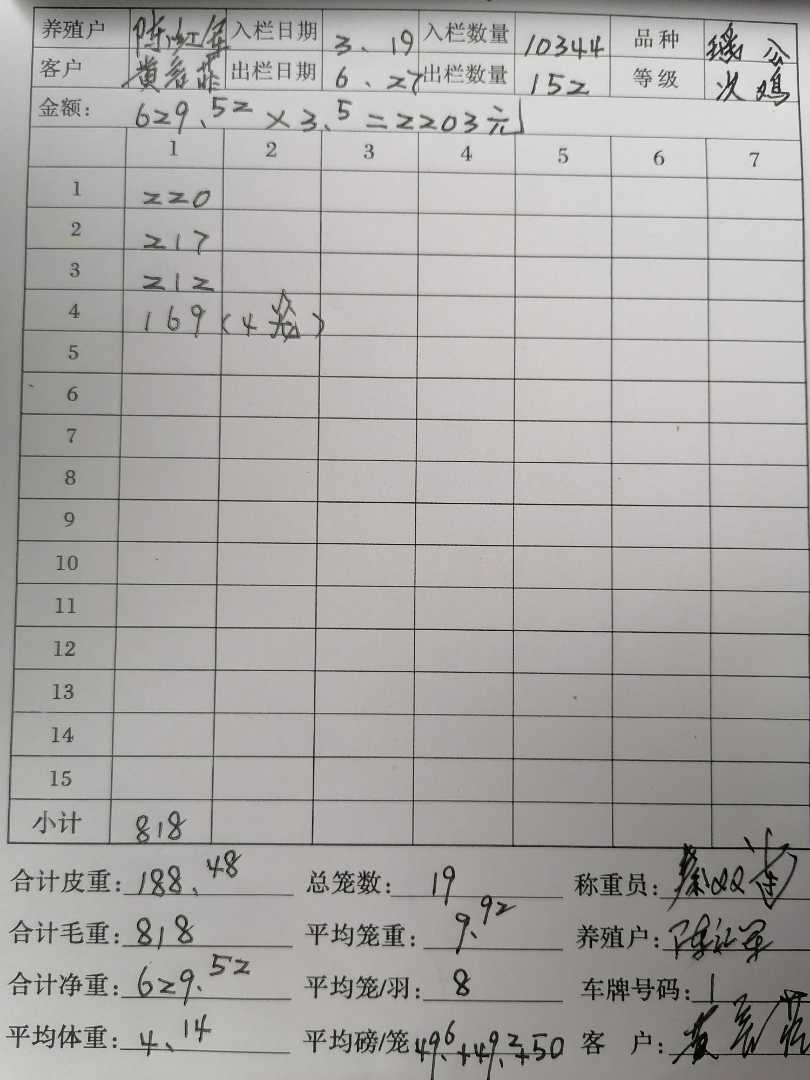 养殖户 陈红军 入栏日期 3.19 入栏数量 10344 品种 瑶公
客户 出栏日期 6.27 出栏数量 152 等级 次鸡
金额： 629.52×3.5=2203元
1 2 3 4 5 6 7
1 220
2 217
3 212
4 169（4笼）
5
6
7
8
9
10
11
12
13
14
15
小计 818
合计皮重：188.48 总笼数：19 称重员：
合计毛重：818 平均笼重：9.92 养殖户：陈红军
合计净重：629.52 平均笼/羽：8 车牌号码：1
平均体重：4.14 平均磅/笼 49.6+49.2+50 客 户：